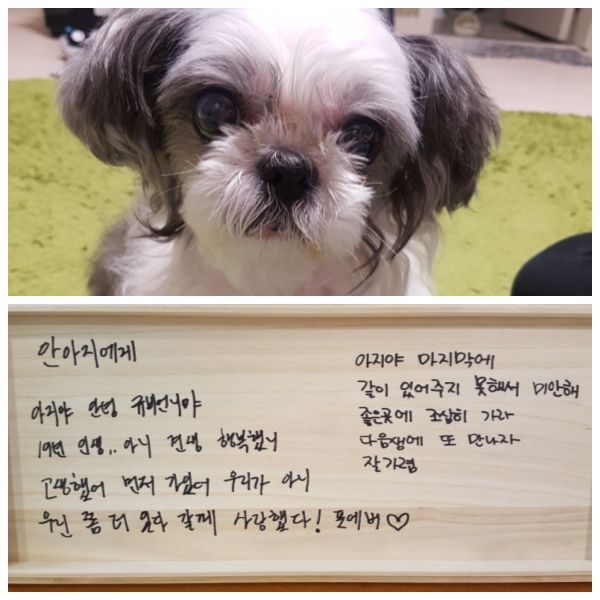 안아지에게
아지야 안녕 언니야
19년 인생.. 아니 견생 행복했니
고생했어 먼저 가있어 우리가 아니
우린 좀 더 있다 갈께 사랑했다! 포에버♡
아지야 마지막에
같이 있어주지 못해서 미안해
좋은곳에 조심히 가라
다음생에 또 만나자
잘가렴